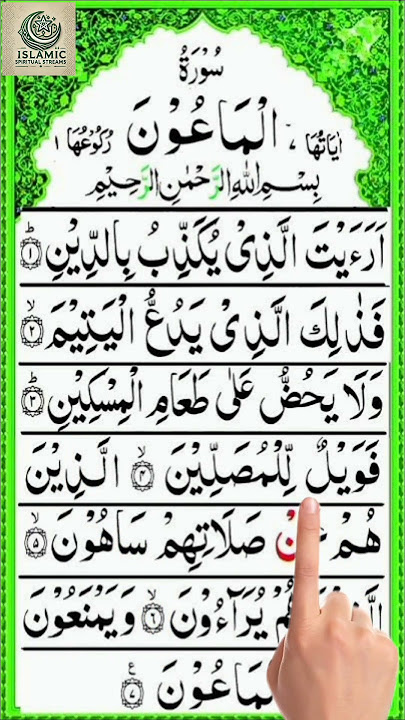 ISLAMIC
SPIRITUAL STREAMS
سُوْرَةُ
اٰیَاتُهَا ٧ الْمَاعُوْنَ رُكُوْعُهَا ١
بِسْمِ اللّٰهِ الرَّحْمٰنِ الرَّحِیْمِ
اَرَءَیْتَ الَّذِیْ یُكَذِّبُ بِالدِّیْنِ ؕ﴿۱﴾
فَذٰلِكَ الَّذِیْ یَدُعُّ الْیَتِیْمَ ۙ﴿۲﴾
وَلَا یَحُضُّ عَلٰی طَعَامِ الْمِسْكِیْنِ ؕ﴿۳﴾
فَوَیْلٌ لِّلْمُصَلِّیْنَ ۙ﴿۴﴾ الَّذِیْنَ
هُمْ عَنْ صَلَاتِهِمْ سَاهُوْنَ ۙ﴿۵﴾
یُرَآءُوْنَ ۙ﴿۶﴾ وَیَمْنَعُوْنَ
﴿۷﴾ ع